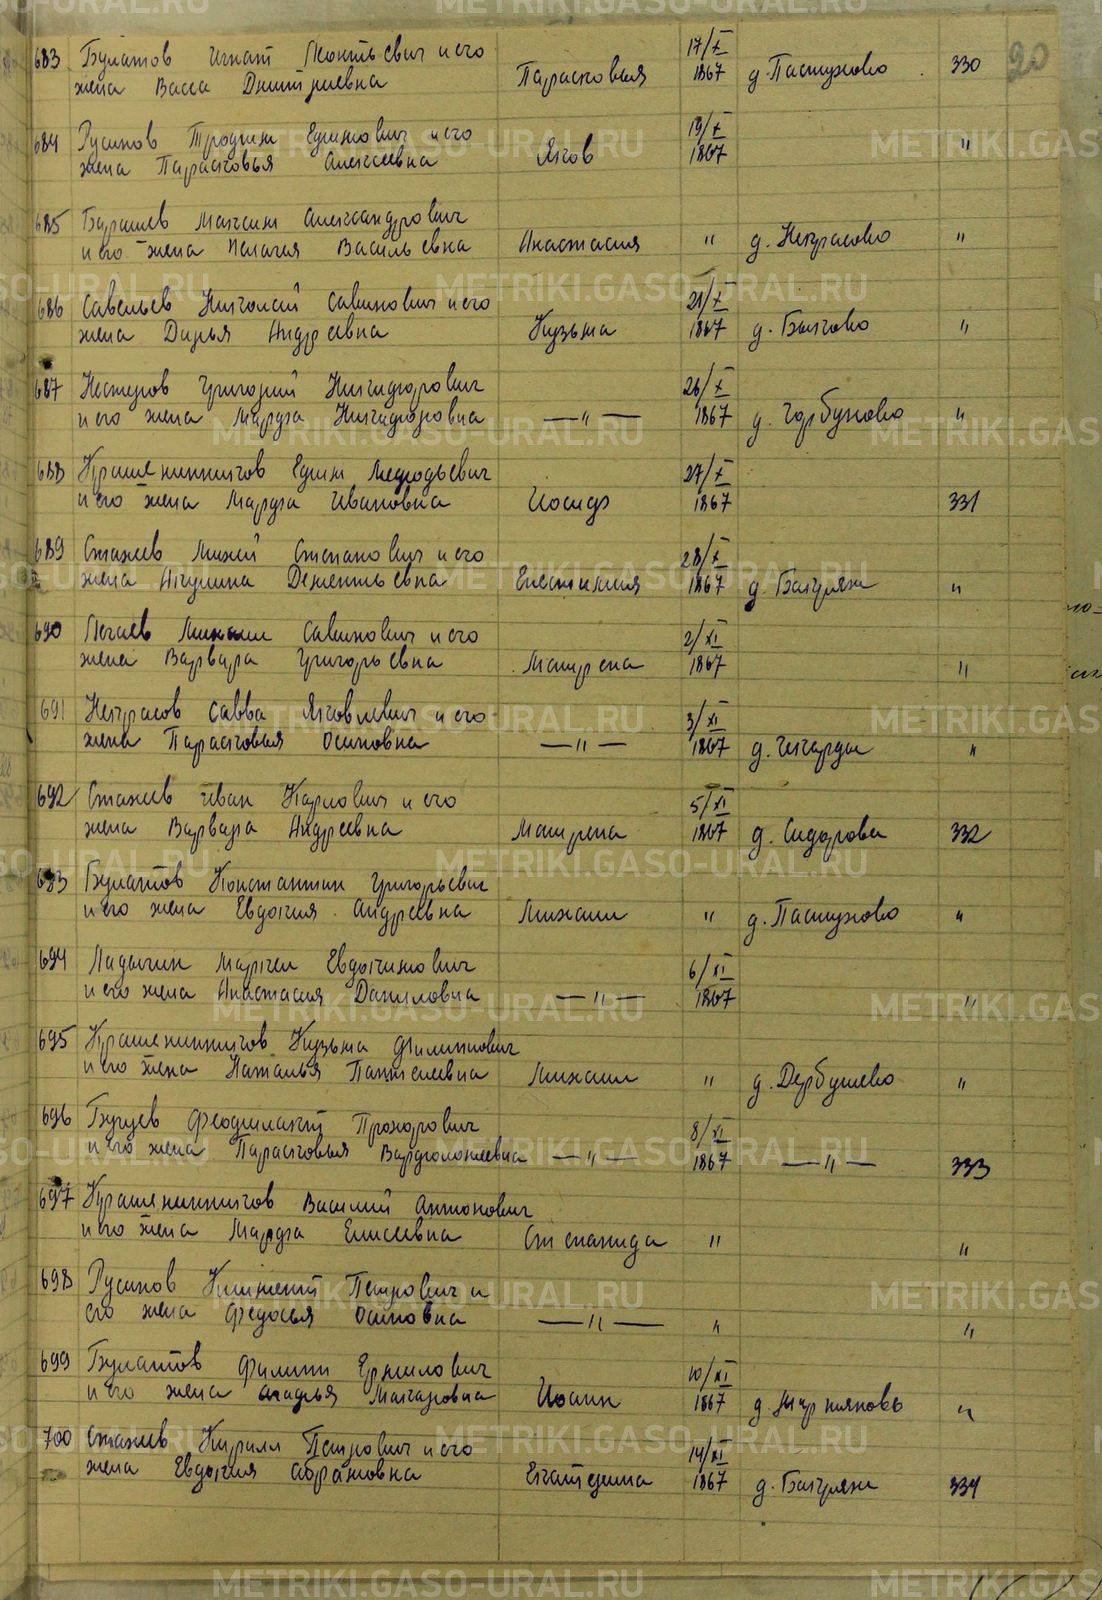 20
683 Булатов Игнат Леонтьевич и его
жена Васса Дмитриевна Парасковья 17/X 1867 д. Пастухово 330
684 Русинов Трофим Ефимович и его
жена Парасковья Алексеевна Яков 19/X 1867 "
685 Барышев Максим Александрович
и его жена Пелагея Васильевна Анастасия " д. Некрасово "
686 Савельев Николай Савинович и его
жена Дарья Андреевна Кузьма 21/X 1867 д. Быково "
687 Нестеров Григорий Никифорович
и его жена Марфа Никифоровна —"— 26/X 1867 д. Горбуново "
688 Крашенинников Ефим Мефодьевич
и его жена Марфа Ивановна Иосиф 27/X 1867 331
689 Стахеев Михей Степанович и его
жена Акулина Дементьевна 28/X 1867 д. Бакряж "
690 Михаил Савинович и его
жена Варвара Григорьевна Матрена 2/XI 1867 "
691 Некрасов Савва Яковлевич и его
жена Парасковья Осиповна —"— 3/XI 1867 д. "
692 Стахеев Иван Карпович и его
жена Варвара Андреевна Матрена 5/XI 1867 д. Сидорова 332
693 Булатов Константин Григорьевич
и его жена Евдокия Андреевна Михаил " д. Пастухово "
694 Ладыгин Маркел Евдокимович
и его жена Анастасия Даниловна —"— 6/XI 1867 "
695 Крашенинников Кузьма Филиппович
и его жена Наталья Пантелеевна Михаил " д. Дербушево "
696 Феофилакт Прохорович
и его жена Парасковья Варфоломеевна —"— 8/XI 1867 —"— 333
697 Крашенинников Василий Антонович
и его жена Марфа Елисеевна Степанида " "
698 Русинов Климент Петрович и
его жена Федосья Осиповна —"— " "
699 Булатов Филипп Ермилович
и его жена Макаровна Иоанн 10/XI 1867 д. "
700 Стахеев Кирилл Петрович и его
жена Евдокия Абрамовна Екатерина 14/XI 1867 д. Бакряж 334
METRIKI.GASO-URAL.RU